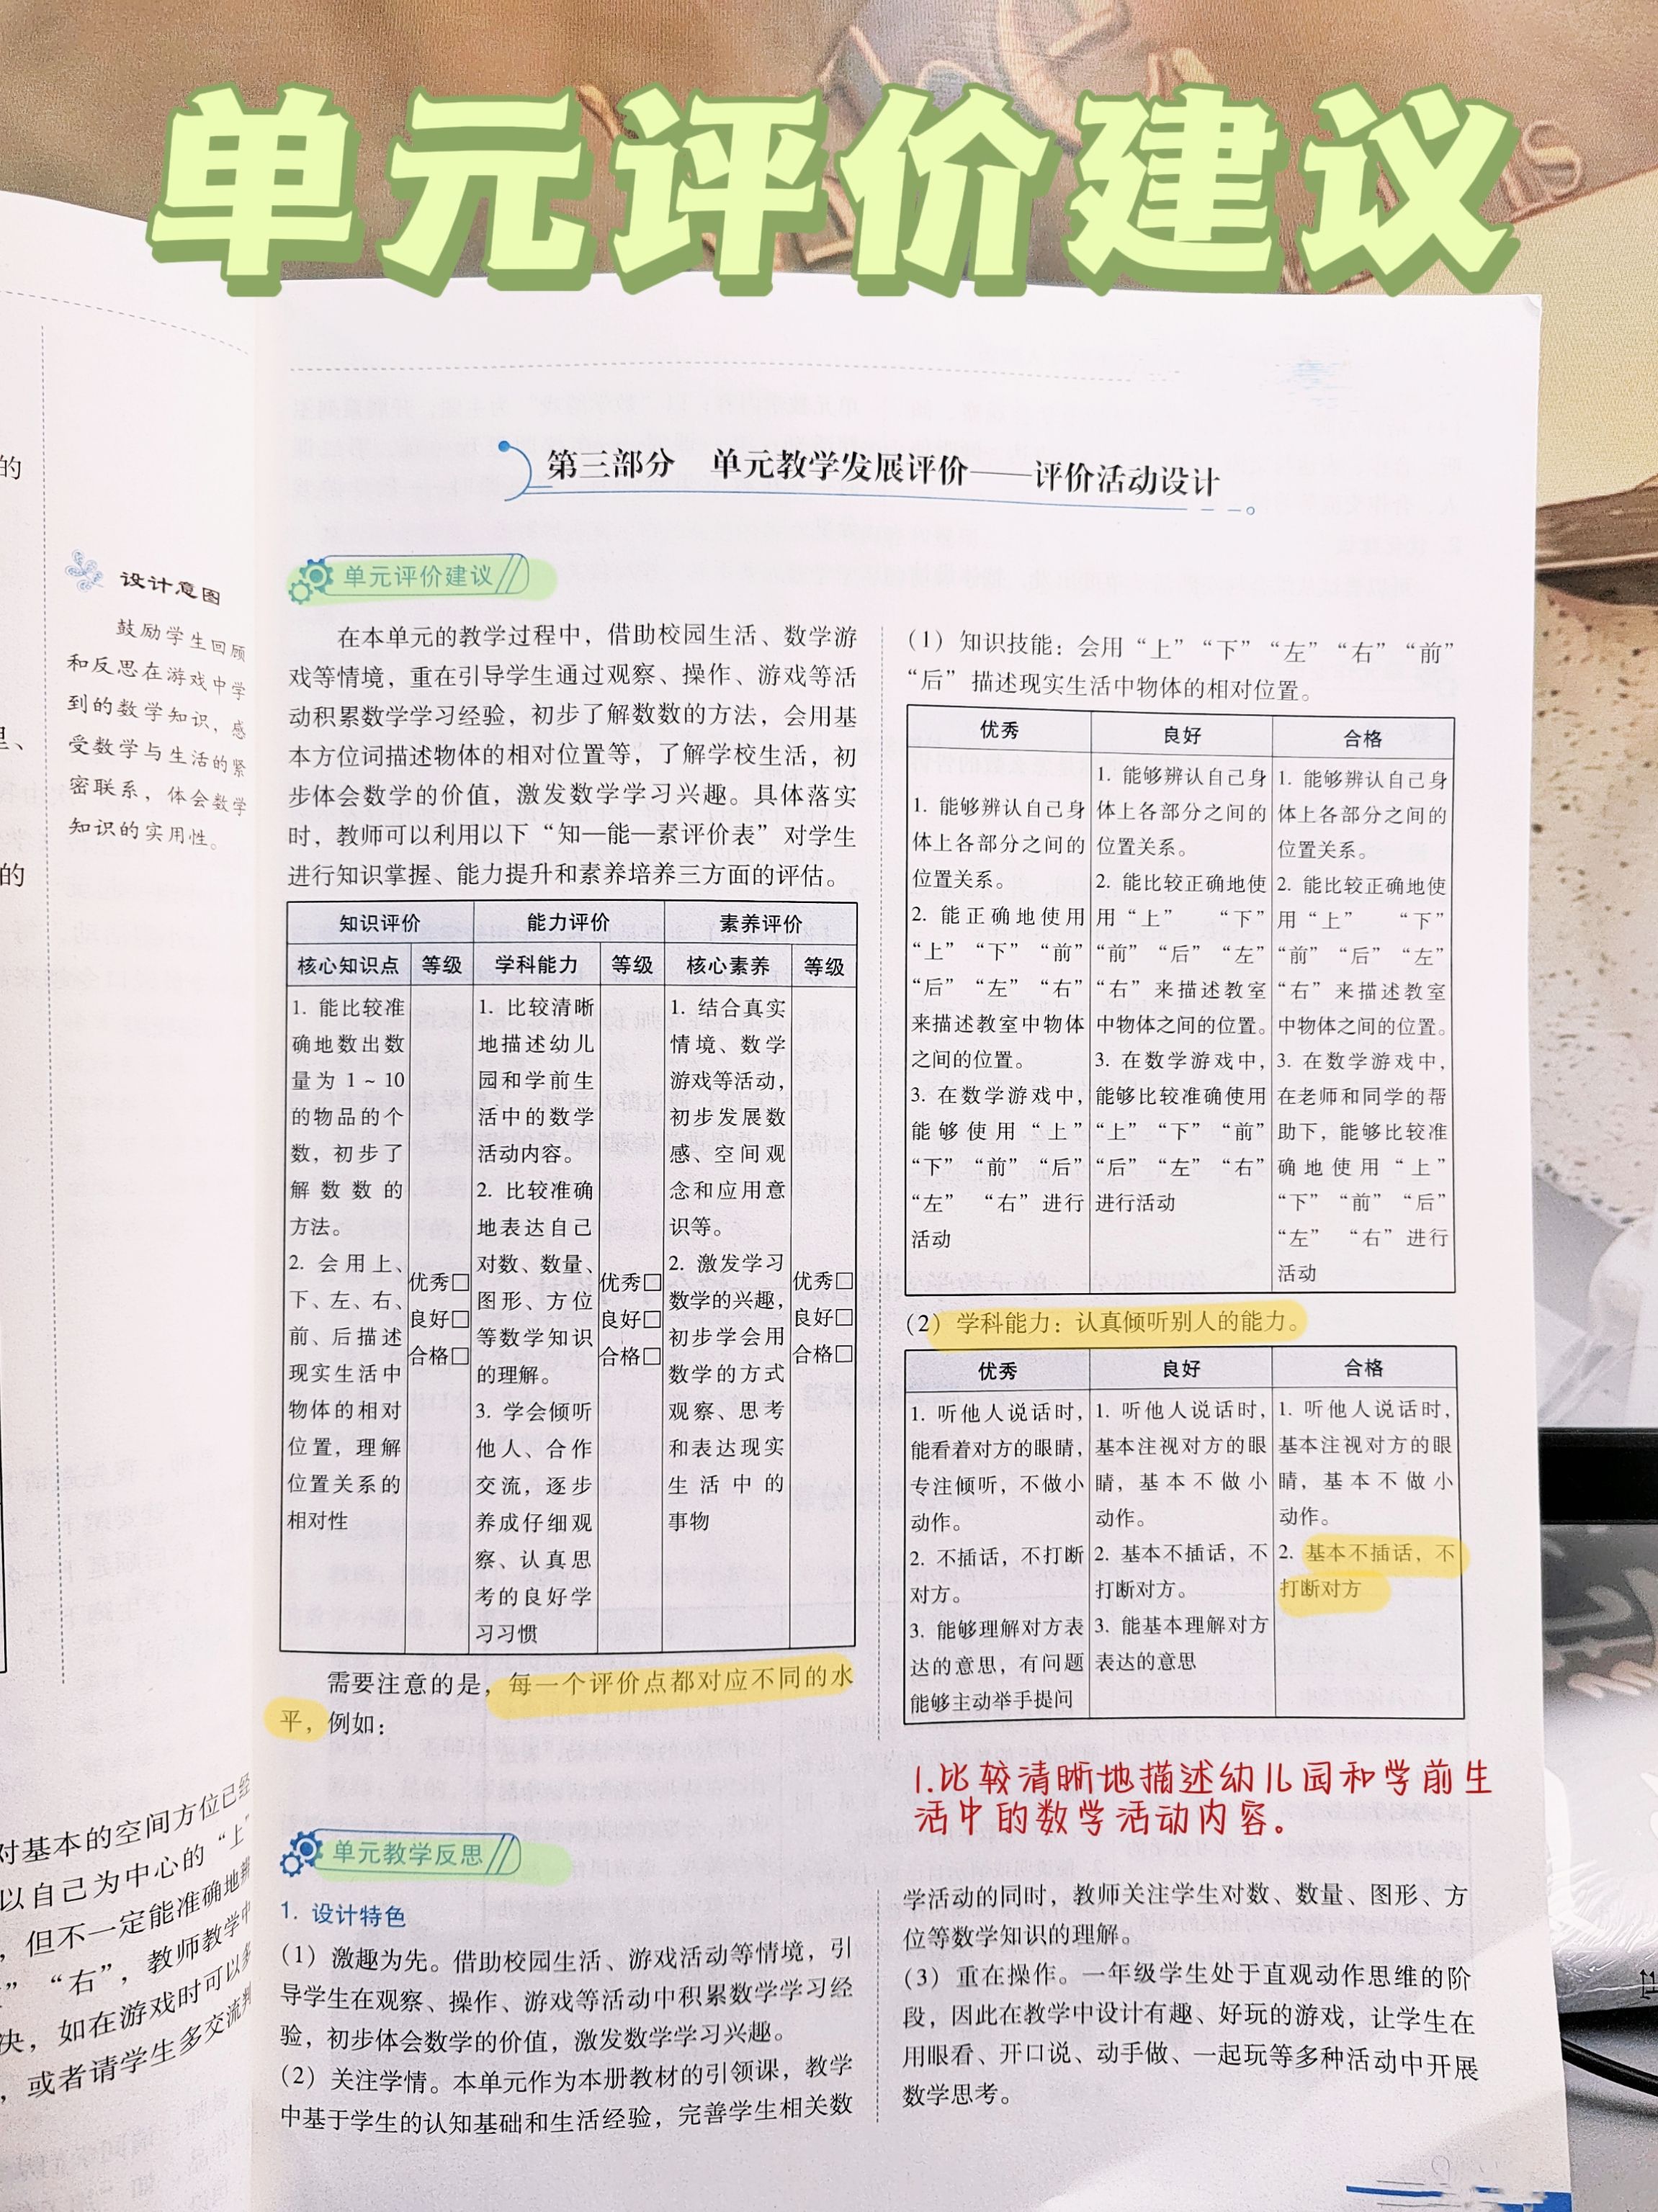 单元评价建议
的
里、
的
设计意图
鼓励学生回顾
和反思在游戏中学
到的数学知识，感
受数学与生活的紧
密联系，体会数学
知识的实用性。
对基本的空间方位已经
以自己为中心的“上”
，但不一定能准确地
“右”，教师教学中
快，如在游戏时可以多
，或者请学生多交流
第三部分　单元教学发展评价——评价活动设计
单元评价建议
在本单元的教学过程中，借助校园生活、数学游
戏等情境，重在引导学生通过观察、操作、游戏等活
动积累数学学习经验，初步了解数数的方法，会用基
本方位词描述物体的相对位置等，了解学校生活，初
步体会数学的价值，激发数学学习兴趣。具体落实
时，教师可以利用以下“知—能—素评价表”对学生
进行知识掌握、能力提升和素养培养三方面的评估。
知识评价　能力评价　素养评价
核心知识点　等级　学科能力　等级　核心素养　等级
1. 能比较准
确地数出数
量为 1 ~ 10
的物品的个
数，初步了
解数数的
方法。
2. 会用上、
下、左、右、
前、后描述
现实生活中
物体的相对
位置，理解
位置关系的
相对性
优秀□
良好□
合格□
1. 比较清晰
地描述幼儿
园和学前生
活中的数学
活动内容。
2. 比较准确
地表达自己
对数、数量、
图形、方位
等数学知识
的理解。
3. 学会倾听
他人、合作
交流，逐步
养成仔细观
察、认真思
考的良好学
习习惯
优秀□
良好□
合格□
1. 结合真实
情境、数学
游戏等活动，
初步发展数
感、空间观
念和应用意
识等。
2. 激发学习
数学的兴趣，
初步学会用
数学的方式
观察、思考
和表达现实
生活中的
事物
优秀□
良好□
合格□
需要注意的是，每一个评价点都对应不同的水
平，例如：
（1）知识技能：会用“上”“下”“左”“右”“前”
“后”描述现实生活中物体的相对位置。
优秀　良好　合格
1. 能够辨认自己身
体上各部分之间的
位置关系。
2. 能正确地使用
“上”“下”“前”
“后”“左”“右”
来描述教室中物体
之间的位置。
3. 在数学游戏中，
能够使用“上”
“下”“前”“后”
“左”“右”进行
活动
1. 能够辨认自己身
体上各部分之间的
位置关系。
2. 能比较正确地使
用“上”“下”
“前”“后”“左”
“右”来描述教室
中物体之间的位置。
3. 在数学游戏中，
能够比较准确使用
“上”“下”“前”
“后”“左”“右”
进行活动
1. 能够辨认自己身
体上各部分之间的
位置关系。
2. 能比较正确地使
用“上”“下”
“前”“后”“左”
“右”来描述教室
中物体之间的位置。
3. 在数学游戏中，
在老师和同学的帮
助下，能够比较准
确地使用“上”
“下”“前”“后”
“左”“右”进行
活动
（2）学科能力：认真倾听别人的能力。
优秀　良好　合格
1. 听他人说话时，
能看着对方的眼睛，
专注倾听，不做小
动作。
2. 不插话，不打断
对方。
3. 能够理解对方表
达的意思，有问题
能够主动举手提问
1. 听他人说话时，
基本注视对方的眼
睛，基本不做小
动作。
2. 基本不插话，不
打断对方。
3. 能基本理解对方
表达的意思
1. 听他人说话时，
基本注视对方的眼
睛，基本不做小
动作。
2. 基本不插话，不
打断对方
1.比较清晰地描述幼儿园和学前生
活中的数学活动内容。
单元教学反思
1. 设计特色
（1）激趣为先。借助校园生活、游戏活动等情境，引
导学生在观察、操作、游戏等活动中积累数学学习经
验，初步体会数学的价值，激发数学学习兴趣。
（2）关注学情。本单元作为本册教材的引领课，教学
中基于学生的认知基础和生活经验，完善学生相关数
学活动的同时，教师关注学生对数、数量、图形、方
位等数学知识的理解。
（3）重在操作。一年级学生处于直观动作思维的阶
段，因此在教学中设计有趣、好玩的游戏，让学生在
用眼看、开口说、动手做、一起玩等多种活动中开展
数学思考。